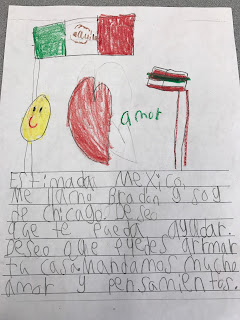 amor
Estimada Mexico,
Me llamo Bradon y soy
de chicago. Deseo
que te pueda ayudar.
Deseo que puedes armar
tu casa. Mandamos mucho
amor y pensamientos.